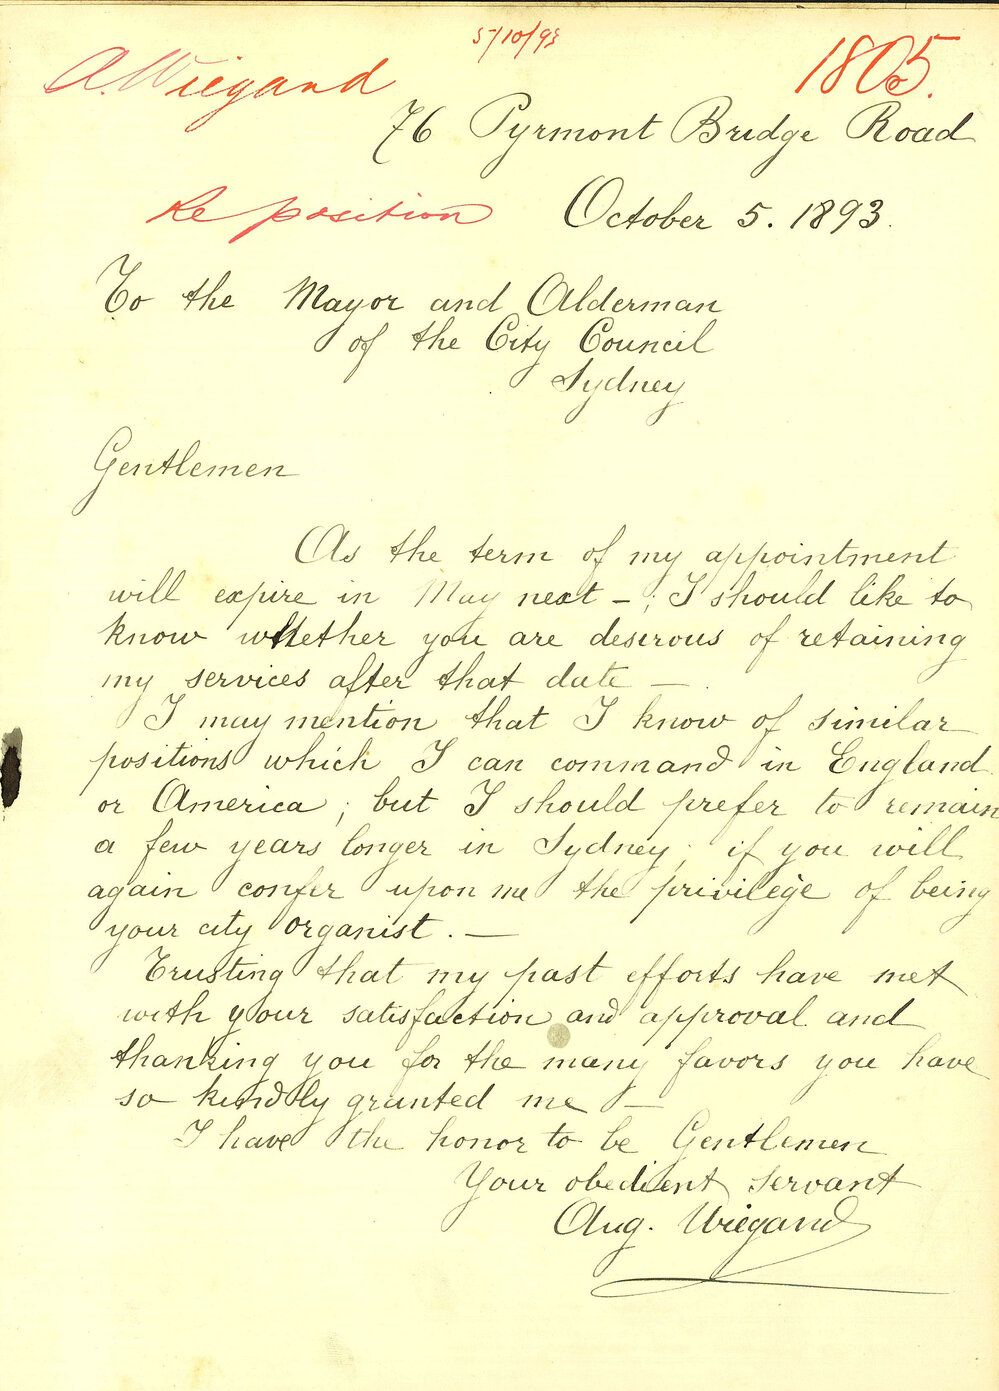 5/10/93
A. Wiegand 1805.
76 Pyrmont Bridge Road
Re position October 5. 1893.
To the Mayor and Alderman
of the City Council
Sydney
Gentlemen
As the term of my appointment
will expire in May next – ; I should like to
know whether you are desirous of retaining
my services after that date —
I may mention that I know of similar
positions which I can command in England
or America ; but I should prefer to remain
a few years longer in Sydney ; if you will
again confer upon me the privilege of being
your city organist . —
Trusting that my past efforts have met
with your satisfaction and approval and
thanking you for the many favors you have
so kindly granted me —
I have the honor to be Gentlemen
Your obedient servant
Aug. Wiegand